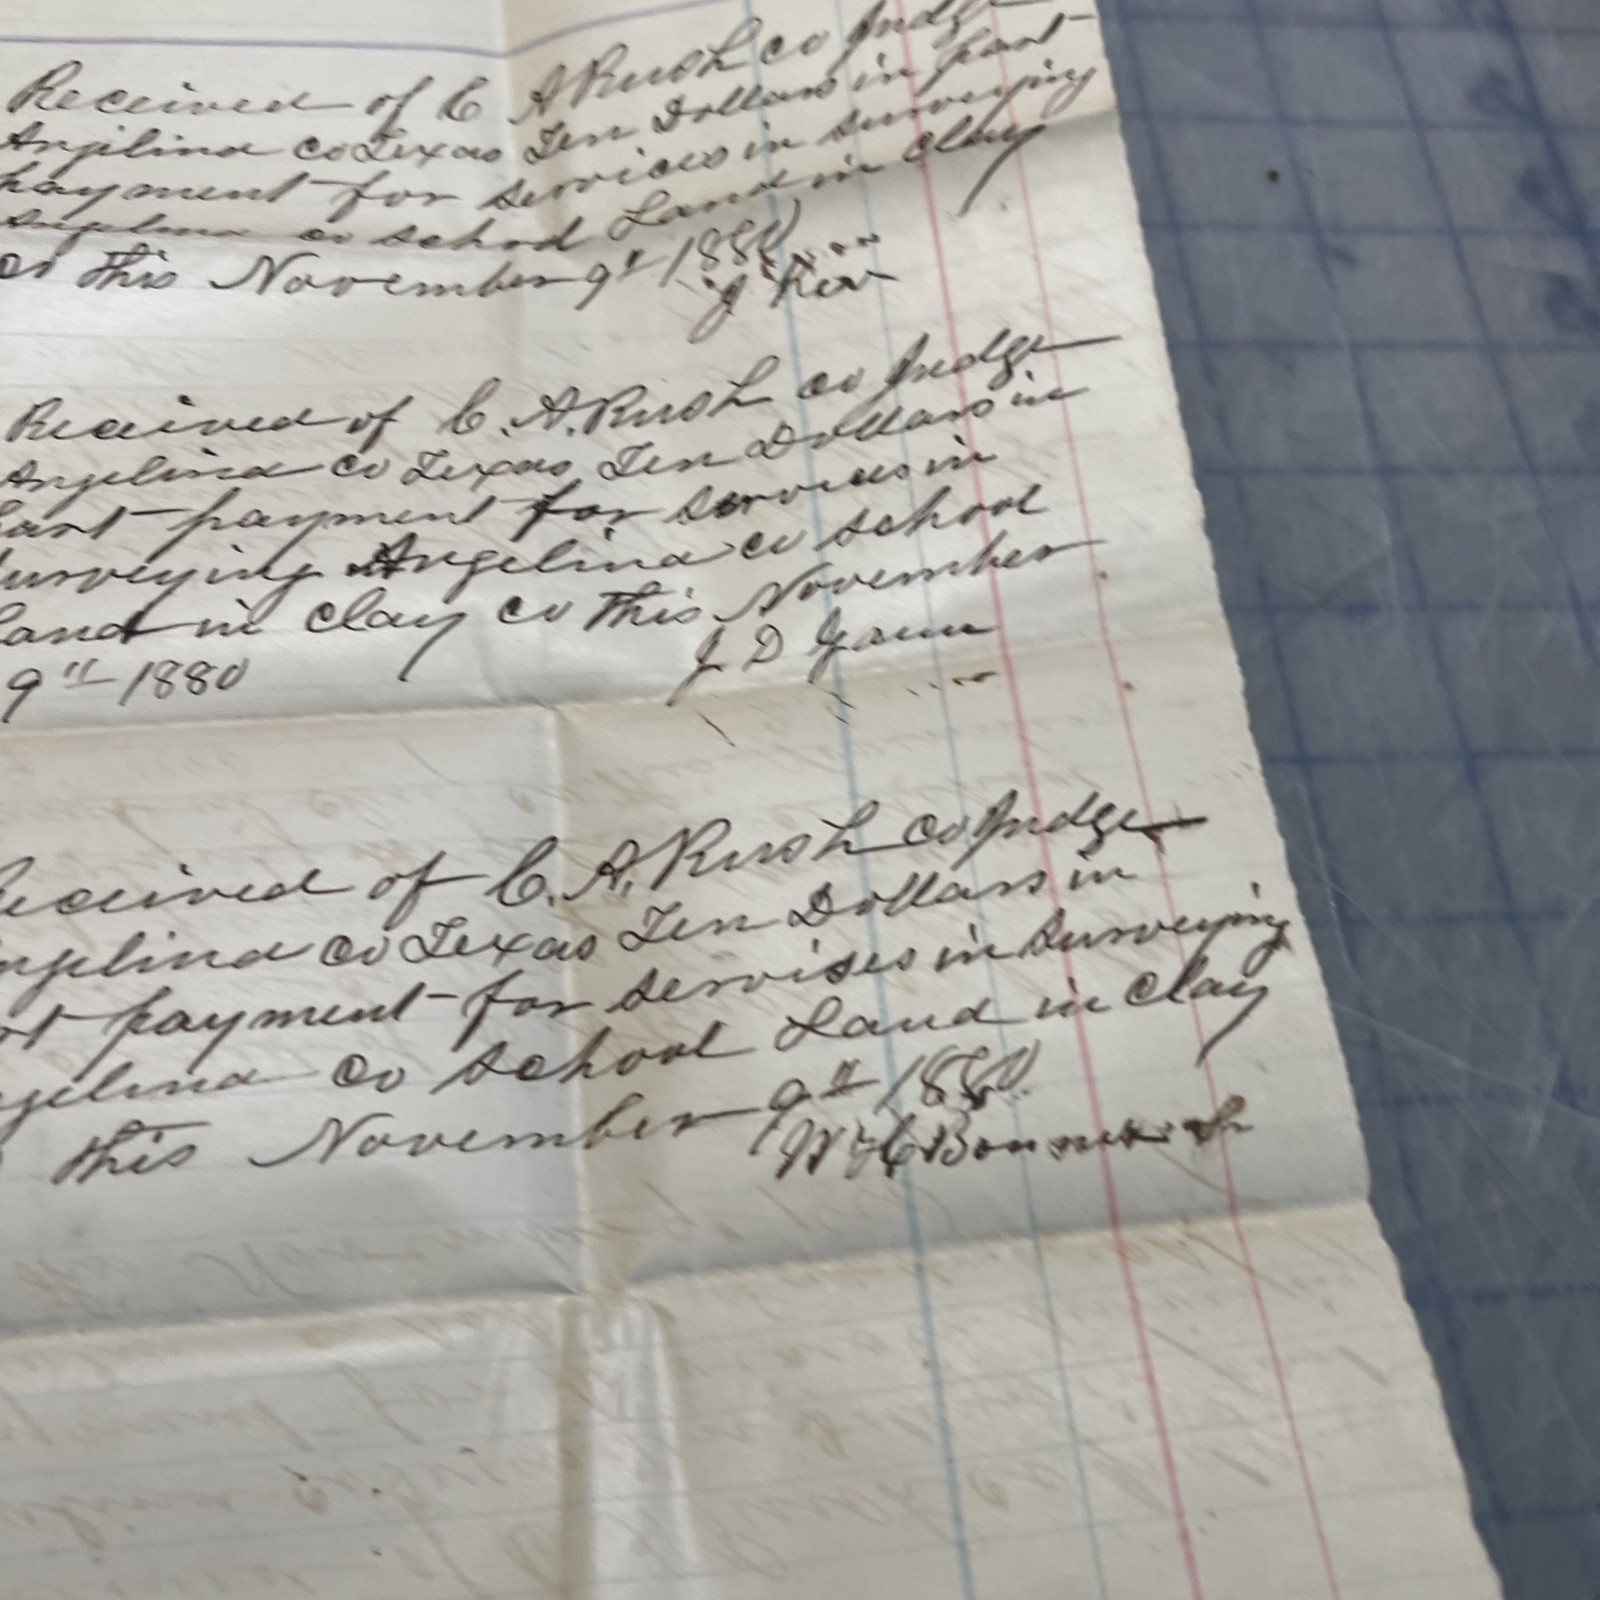 Received of C A Rush co Judge
Angelina co Texas Ten Dollars in part
payment for services in surveying
Angelina co school Land in Clay
co this November 9" 1880
J
Received of C. A. Rush co Judge
Angelina co Texas Ten Dollars in
part payment for services in
surveying Angelina co school
Land in Clay co this November
9" 1880
J D Gann
Received of C. A. Rush co Judge
Angelina co Texas Ten Dollars in
part payment for servises in surveying
Angelina co school Land in Clay
this November 9" 1880
W